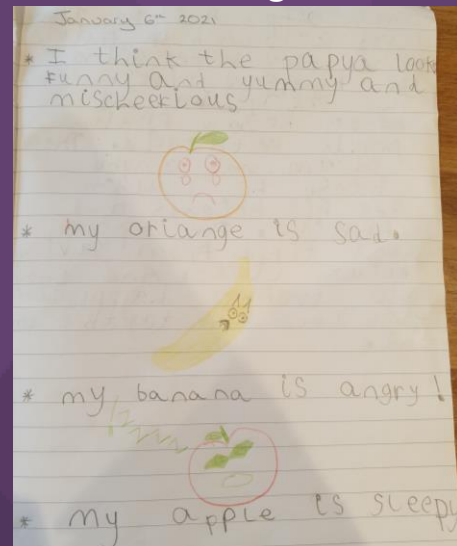 January 6th 2021
* I think the papya looks
funny and yummy and
mischeerious
* my oriange is sad.
* my banana is angry!
* my apple is sleepy